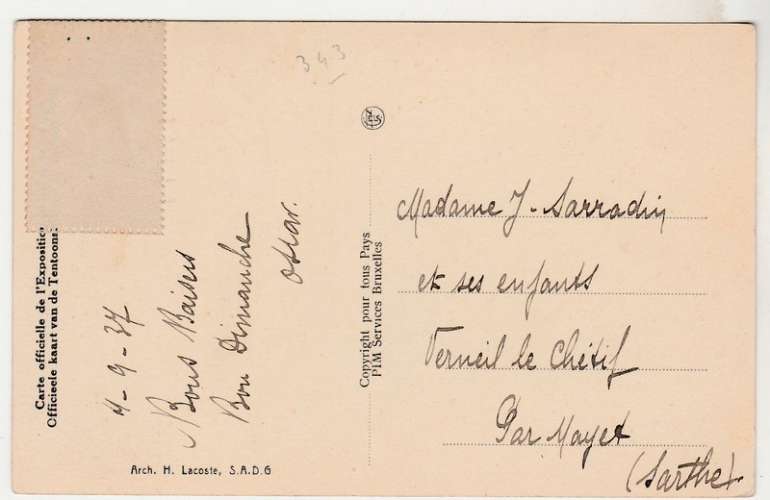 343
Carte officielle de l'Expositio
Officieele kaart van de Tentoons
4-9-37
Bons Baisers
Bon Dimanche
Oscar.
Arch. H. Lacoste, S.A.D.G
Copyright pour tous Pays
PIM Services Bruxelles
Madame J. Sarradin
et ses enfants
Verneil le Chétif
Par Mayet
(Sarthe)